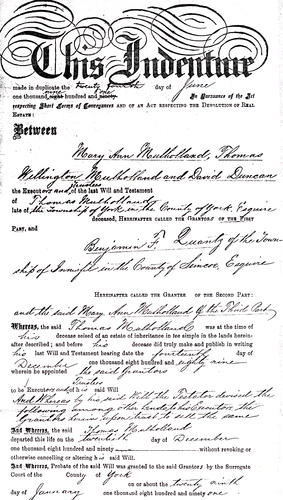 This Indenture
made in duplicate the twenty fourth day of June
one thousand nine hundred and one In Pursuance of the Act
respecting Short Forms of Conveyances and of an Act respecting the Devolution of Real
Estate:
Between
Mary Ann Mulholland, Thomas
Wellington Mulholland and David Duncan
Trustees
the Executors and of the last Will and Testament
of Thomas Mulholland
late of the Township of York in the County of York, Esquire
deceased, Hereinafter called the Grantors of the First
Part, and
Benjamin F. Quantz of the Town-
ship of Innisfil in the County of Simcoe, Esquire
Hereinafter called the Grantee of the Second Part:
and the said Mary Ann Mulholland of the Third Part
Whereas, the said Thomas Mulholland was at the time of
his decease seized of an estate of inheritance in fee simple in the lands herein-
after described; and before his decease did truly make and publish in writing
his last Will and Testament bearing date the fourteenth day of
December one thousand eight hundred and eighty nine
wherein he appointed the said Grantors
Trustees
to be Executors and of his said Will
And Whereas by his said Will the Testator devised the
following among other lands to his Executors the
grantors herein upon trust to sell the same
And Whereas, the said Thomas Mulholland
departed this life on the twentieth day of December
one thousand eight hundred and ninety without revoking or
otherwise cancelling or altering his said Will:
And Whereas, Probate of the said Will was granted to the said Grantors by the Surrogate
Court of the County of York on or about the twenty ninth
day of January one thousand eight hundred and ninety one